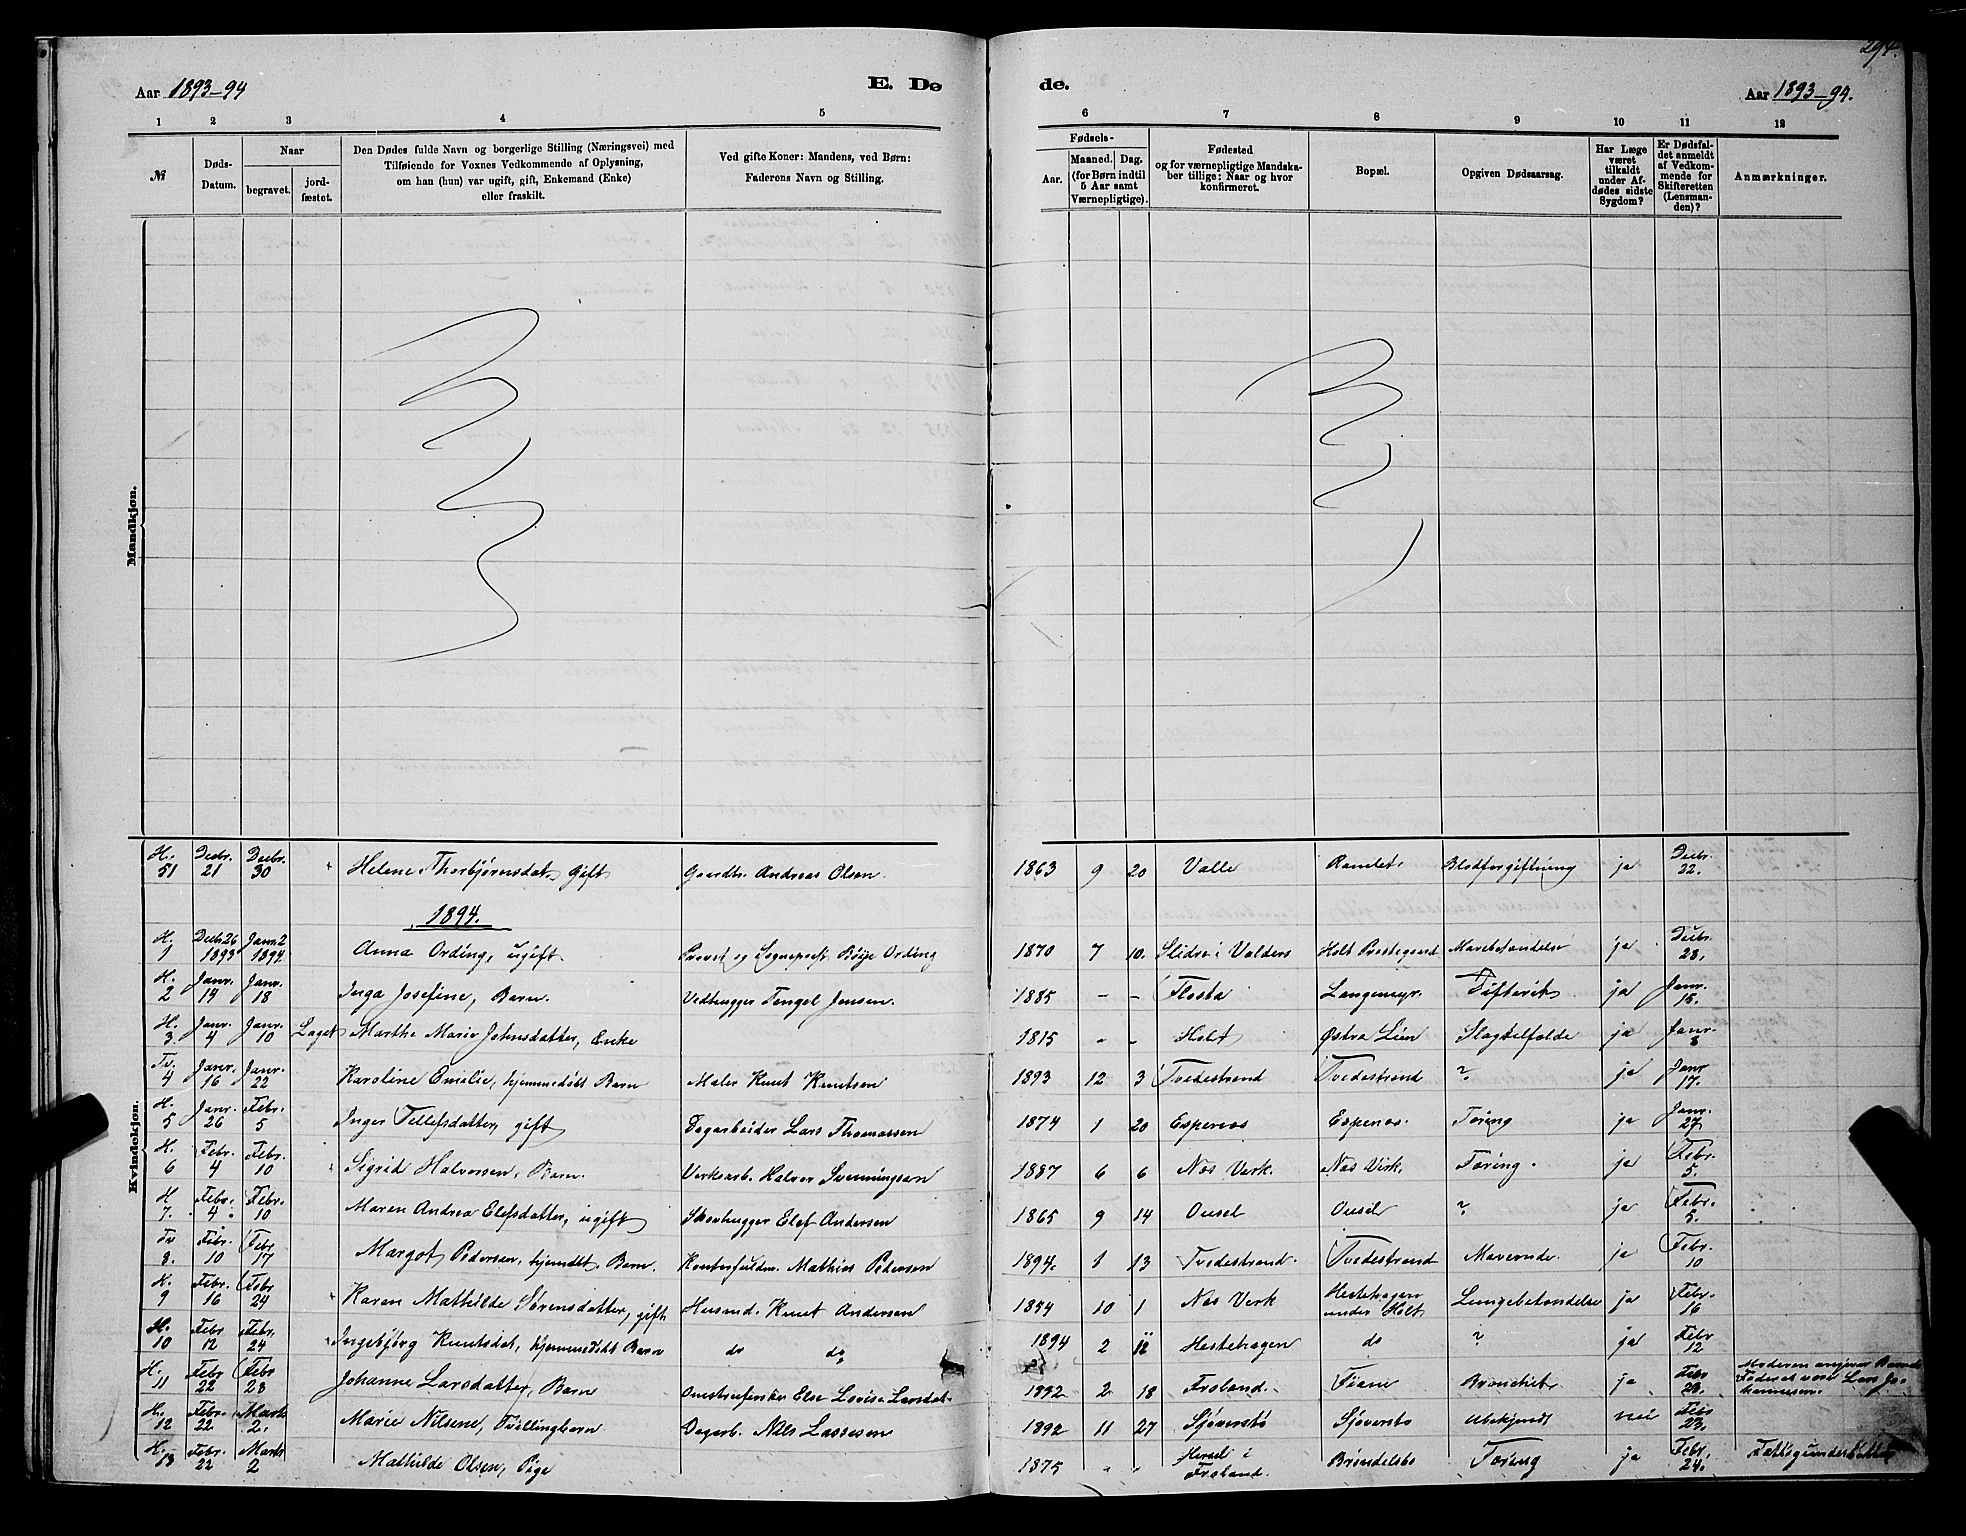 294.
Aar 1893-94 E. Dø de. Aar 1893-94.
1 2 3 4 5 6 7 8 9 10 11 12
№ Døds-Datum. Naar begravet. jord-fæstet. Den Dødes fulde Navn og borgerlige Stilling (Næringsvei) med Tilføiende for Voxnes Vedkommende af Oplysning, om han (hun) var ugift, gift, Enkemand (Enke) eller fraskilt. Ved gifte Koner: Mandens, ved Børn: Faderens Navn og Stilling. Fødsels- Aar. Maaned. Dag. (for Børn indtil 5 Aar samt Værnepligtige). Fødested og for værnepligtige Mandskaber tillige: Naar og hvor konfirmeret. Bopæl. Opgiven Dødsaarsag. Har Læge været tilkaldt under Afdødes sidste Sygdom? Er Dødsfaldet anmeldt af Vedkommende for Skifteretten (Lensmanden)? Anmærkninger.
Mandkjøn.
Kvindekjøn.
H. 51 Decbr. 21 Decbr. 30 Helene Thorbjørnsdat. gift Gaardbr. Andreas Olsen. 1863 9 20 Valle Ramlet. Blodforgiftning ja Decbr. 22.
1894.
H. 1 Decbr 26 1893 Janr 2 1894. Anna Ording, ugift Provst og Sognepræst Böije Ording 1870 7 10. Slidre i Valders Holt Prestegaard Mavebetændelse ja Decbr. 28.
H. 2 Janr. 14 Janr. 18 Inga Josefine, Barn. Vedhugger Tengel Jensen. 1885 - - Flosta Langemyr. Difterit ja Janr. 15.
H. 3. Janr. 4 Janr. 10 Laget Marthe Marie Johnsdatter, Enke 1815 - - Holt Østra Lien Slagtilfælde ja Janr. 8
Tv. 4 Janr. 16 Janr. 22 Karoline Emalie, hjemmedøbt Barn Maler Knut Knutsen 1893 12 3 Tvedestrand Tvedestrand ? ja Janr 17.
H. 5 Janr. 26 Febr. 5 Inger Tellefsdatter, gift Dagarbeider Lars Thomassen 1874 1 20 Espenes Espenes. Tæring ja Janr. 27
H. 6 Febr. 4 Febr. 10 Sigrid Halvorsen, Barn. Verksarb. Halvor Svenningsen 1887 6 6 Nes Verk. Nes Verk. Tæring. ja Febr. 5.
H 7. Febr. 4. Febr. 10 Maren Andrea Elefsdatter, ugift Skovhugger Elef Andersen 1865 9 14 Ousel Ousel ? ja Febr. 5.
Tv 8. Febr. 10 Febr 17 Margot Pedersen, hjemdbt. Barn. Kontorfuldm. Mathias Pedersen 1894. 1 13 Tvedestrand. Tvedestrand Maveonde. ja Febr. 10
H. 9 Febr. 16 Febr 24 Karen Mathilde Sørensdatter, gift Husmd. Knut Andersen 1854 10 1 Nes Verk Hestehagen under Holt Lungebetændelse ja Febr. 16
H. 10 Febr 12 Febr. 24 Ingebjørg Knutsdat, hjemmedøbt Barn do do 1894 2 12 Hestehagen do ? ja Febr 12
H. 11 Febr 22 Febr 28 Johanne Larsdatter, Barn Else Lovise Larsdat. 1892 2 18 Froland. Tiane Bronchit ja Febr Moderen angiver Barnets Fader at være Lars Johannessen.
H. 12 Febr. 22 Marts 2. Marie Nilsine, Tvillingbarn Dagarb. Nils Lassesen 1892 11 27 Sjøverstø Sjøverstø Ubekjendt nei Febr 23.
H. 13 Febr. 22 Marts 2 Mathilde Olsen, Pige 1875 " " Herseli i Froland. Brøndelsbo Tæring ja Febr. 24.